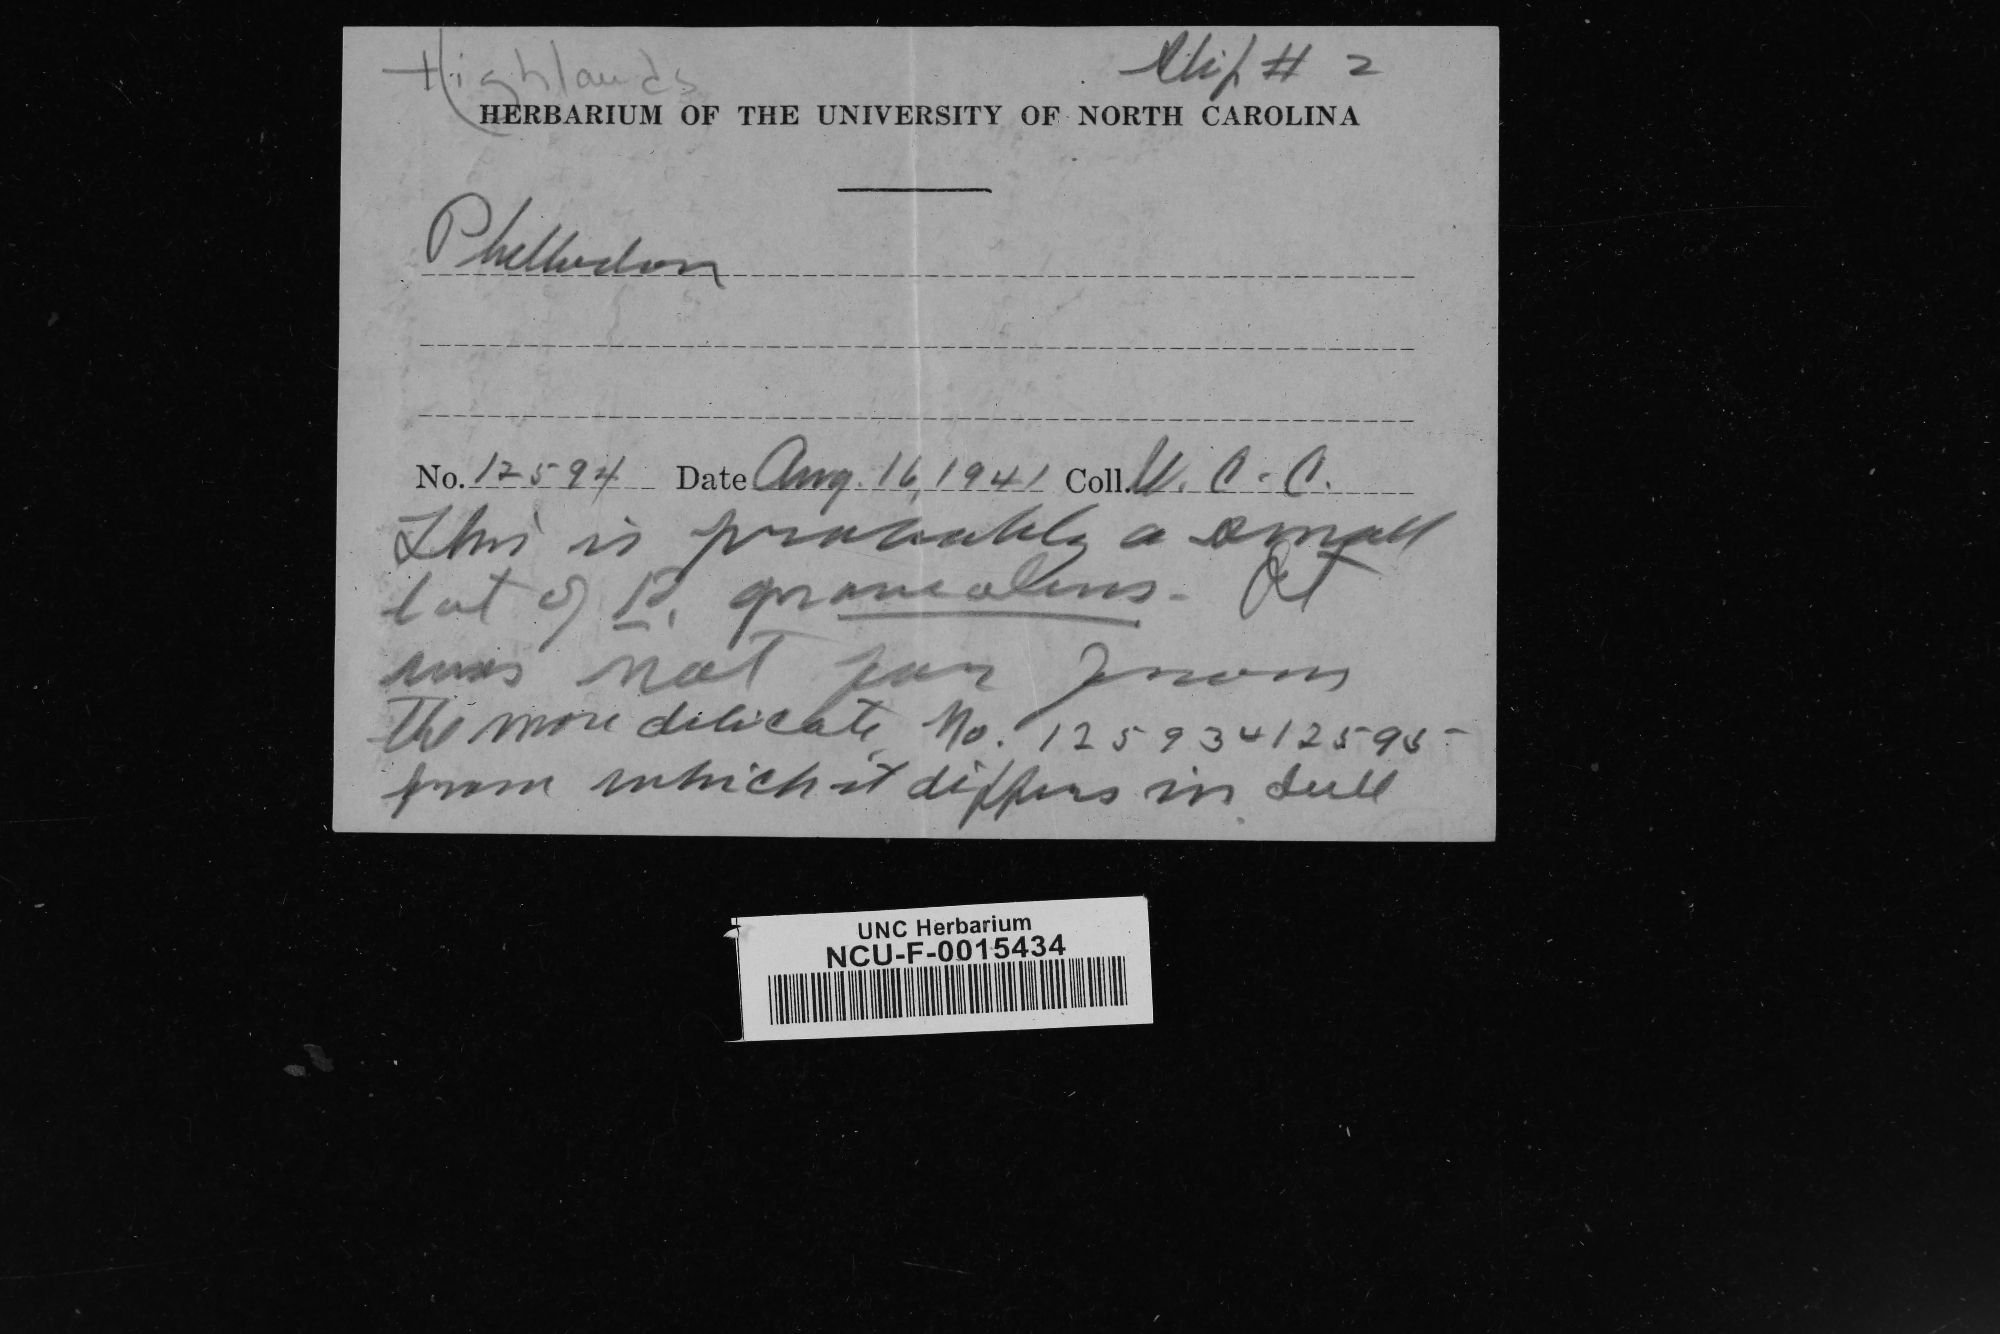 Highlands
Slip # 2
HERBARIUM OF THE UNIVERSITY OF NORTH CAROLINA
Phellodon
No. 12594 Date Aug. 16, 1941 Coll. W. C. C.
This is probably a small
lot of P. graveolens. It
was not far from
the more delicate No. 12593 + 12595
from which it differs in dull
UNC Herbarium
NCU-F-0015434